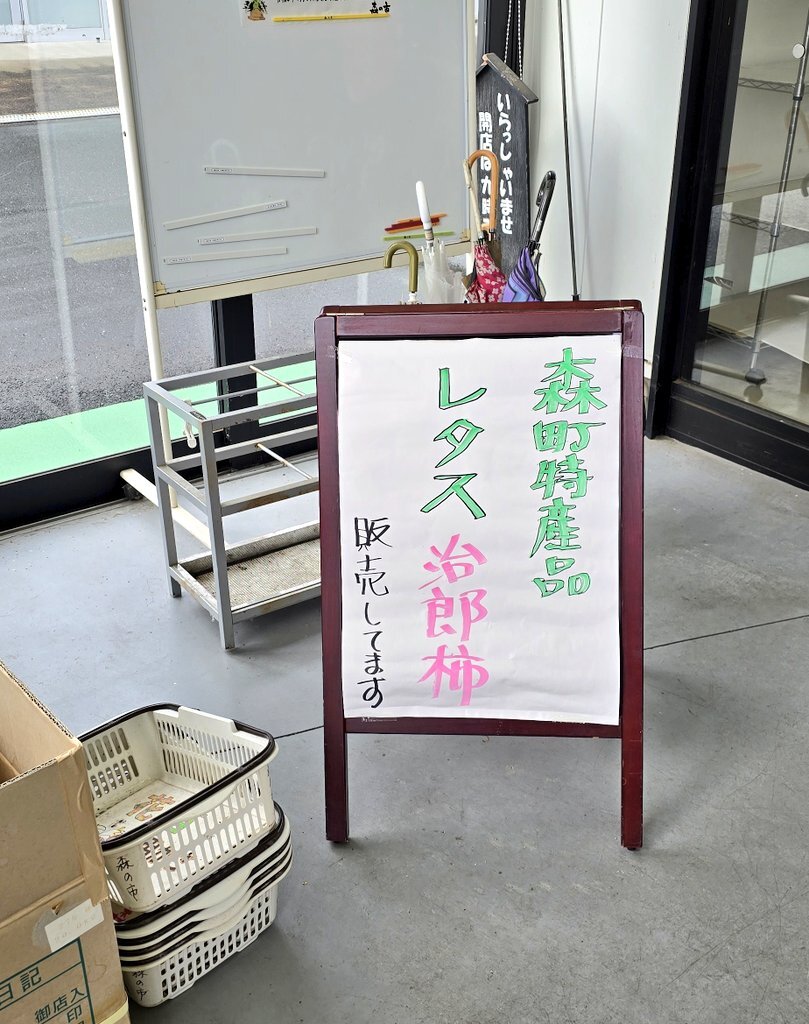 森町特産品
レタス 治郎柿
販売してます
いらっしゃいませ
開店は九時
森の市
森の市
森の市
日記
御店入
印